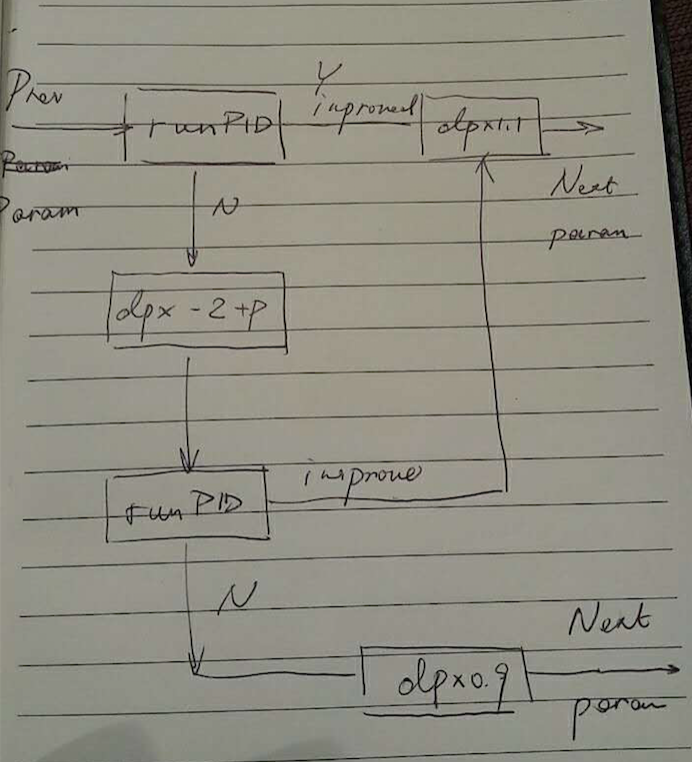 Prev
Param
Param
run PID
Y
improved
dpx1.1
Next
param
N
dpx -2 +P
run PID
improve
N
dpx0.9
Next
param